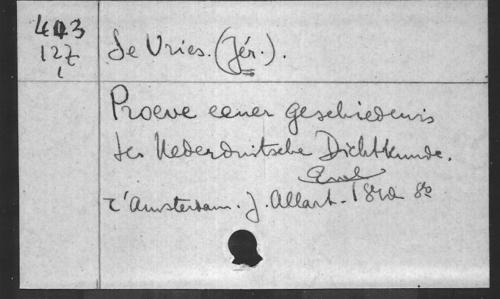 443
12Z
1
De Vries. (Jér.).
Proeve eener geschiedenis
der Nederduitsche Dichtkunde.
t'Amsterdam. J. Allart. 8o